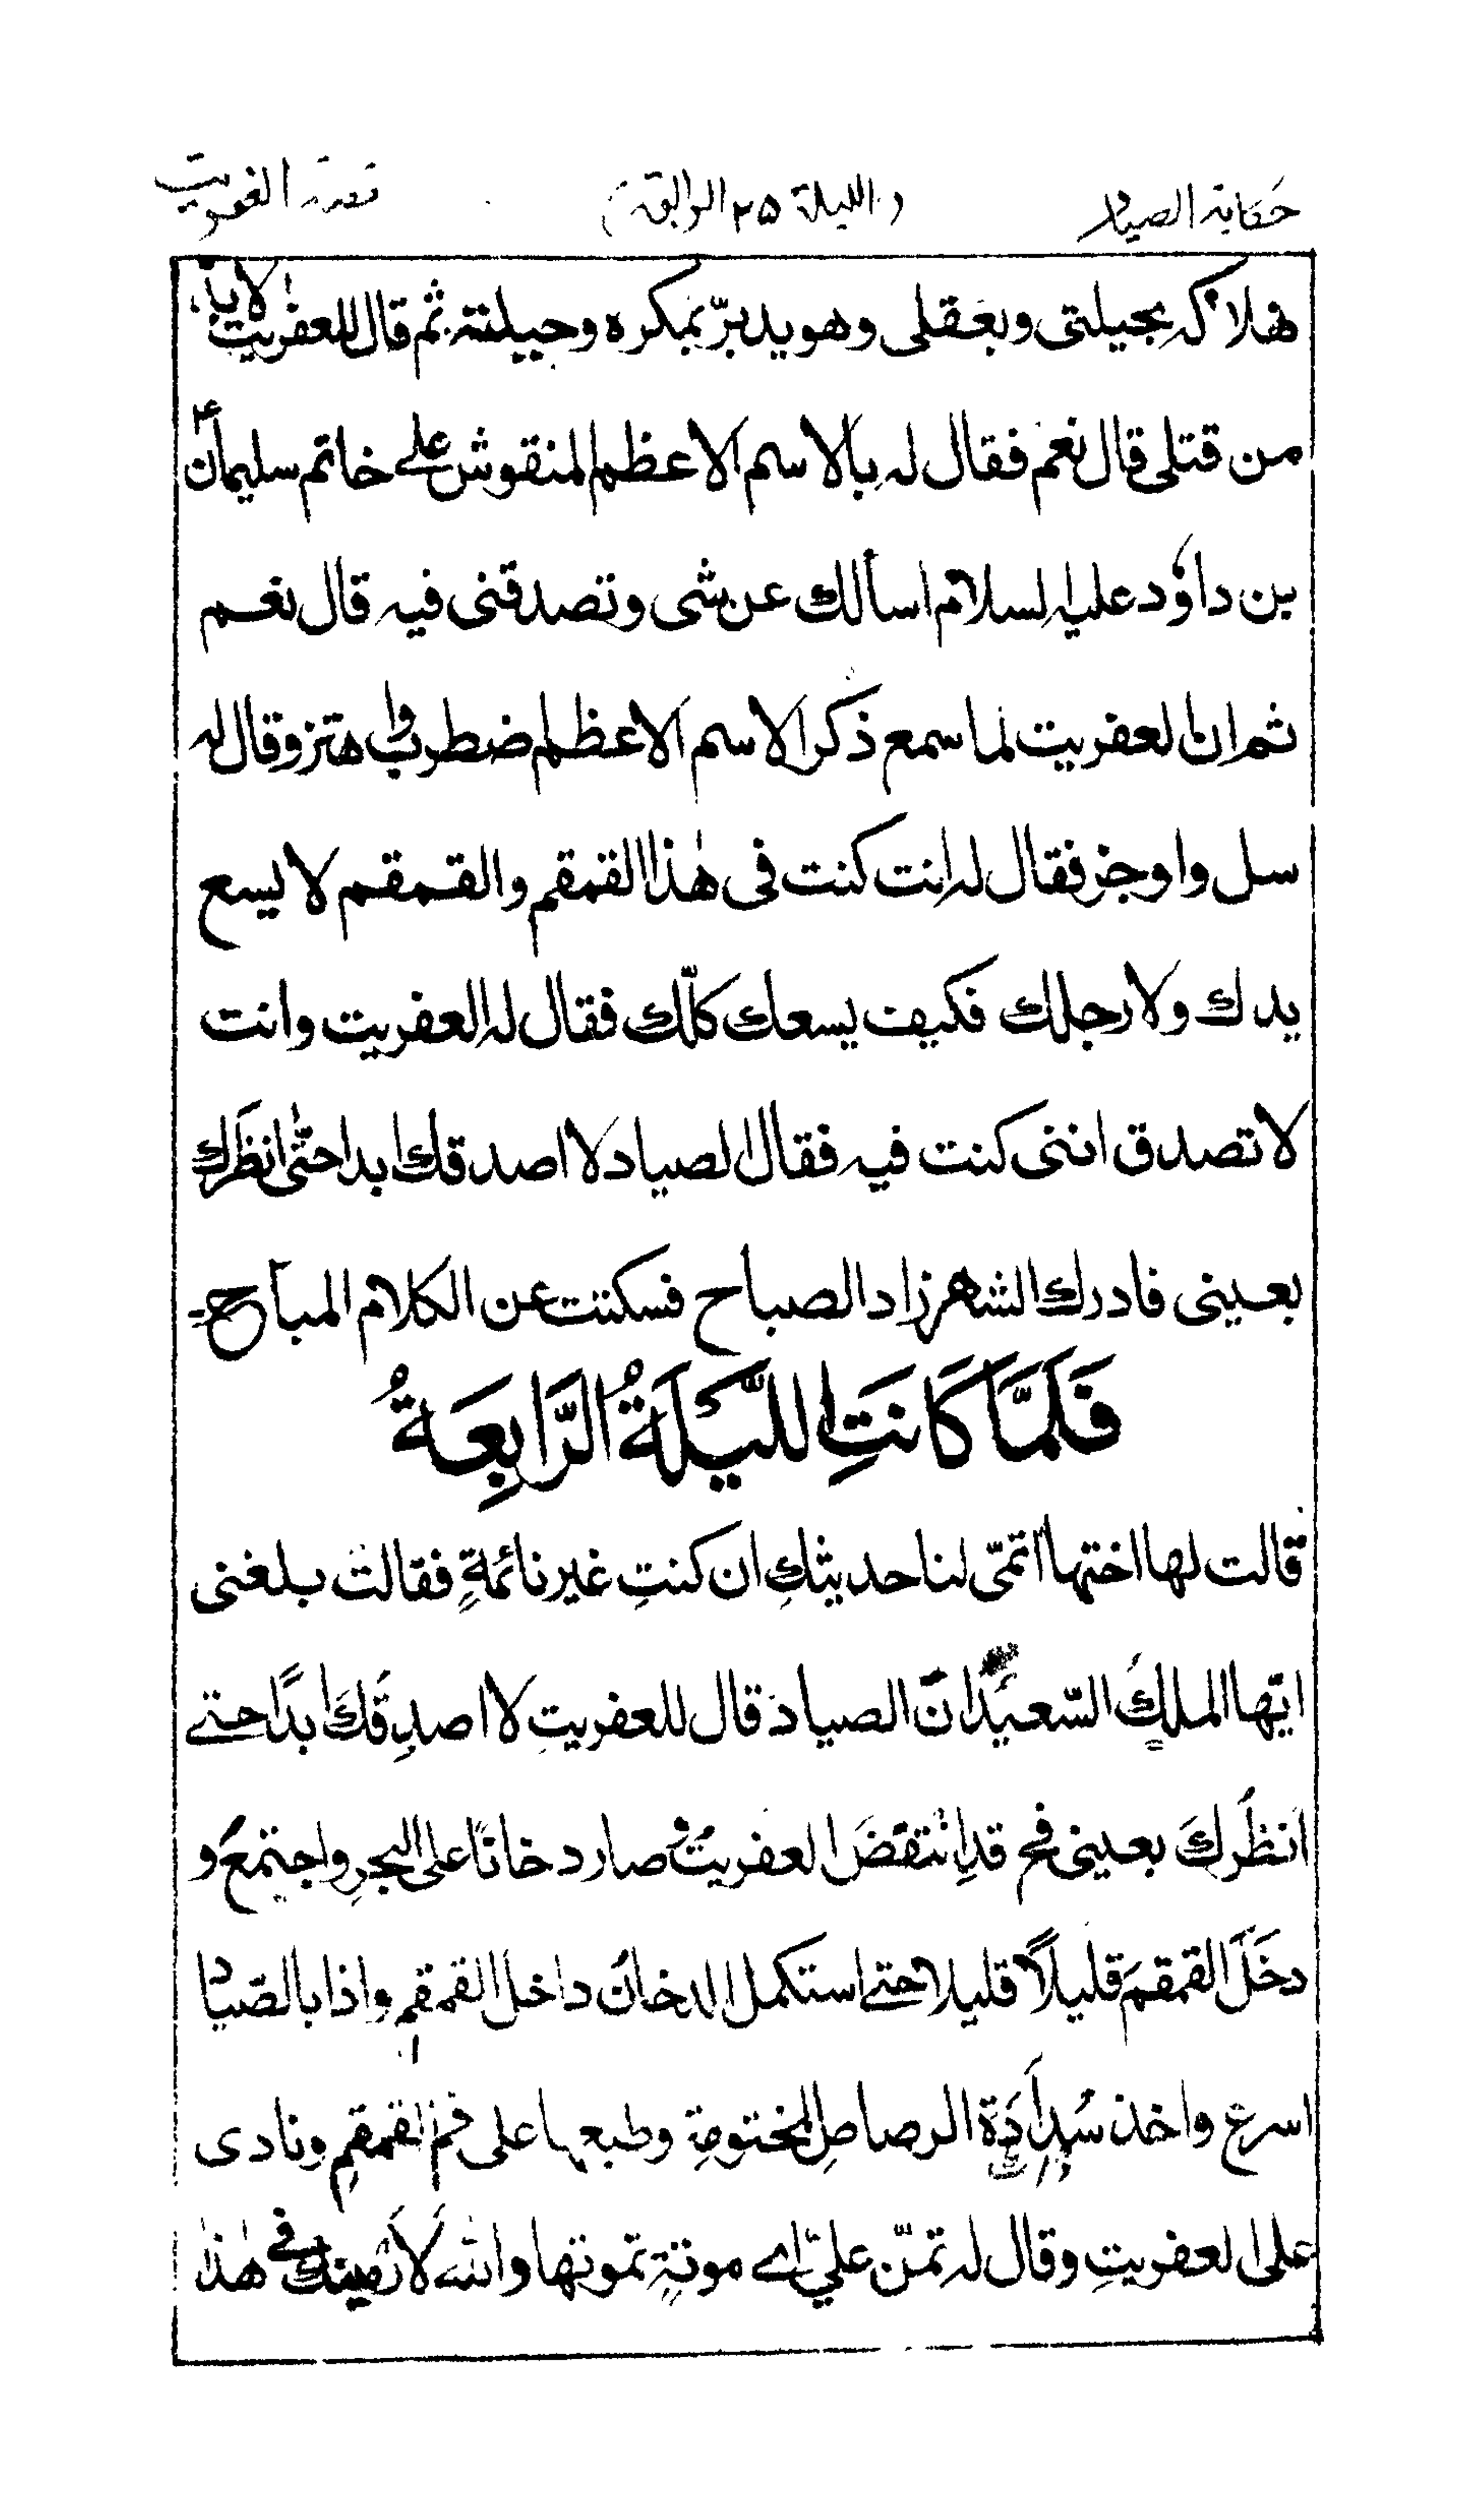 حكاية الصياد (الليلة ٢٥ الرابعة) قصة العفريت
هلاكه بحيلتى وبعقلى وهو يدبّر بمكره وحيلته ثم قال للعفريت لا بد
من قتلى قال نعم فقال له بالاسم الاعظم المنقوش على خاتم سليمان
بن داؤد عليه السلام اسألك عن شى وتصدقنى فيه قال نعم
ثم ان العفريت لما سمع ذكر الاسم الاعظم اضطرب واهتز وقال له
سل واوجز فقال له انت كنت فى هٰذا القمقم والقمقم لا يسع
يدك ولا رجلك فكيف يسعك كلّك فقال له العفريت وانت
لا تصدق اننى كنت فيه فقال الصياد لا اصدقك ابدا حتّى انظرك
بعينى فادرك الشهرزاد الصباح فسكتت عن الكلام المباح
فَلَمَّا كَانَتِ اللَّيْلَةُ الرَّابِعَةُ
قالت لها اختها اتمّى لنا حديثكِ ان كنتِ غير نائمةٍ فقالت بلغنى
ايّها الملك السّعيد انّ الصياد قال للعفريتِ لا اصدِقَكَ ابدًا حتے
انظُرَكَ بعينى فح قدِ انْتقضَ العفريتُ وصار دخانًا على البحرِ واجتمعَ و
دخَلَ القمقمَ قليلاً قليلا حتے استكمل الدخان داخل القمقمِ واذا بالصّياد
اسرع واخذ سُدادَة الرصاصِ المختومةِ وطبعها على فم القمقمِ ونادى
على العفريتِ وقال له تمنّ علىّ اے موتةٍ تموتها والله لأرمينك فى هٰذا